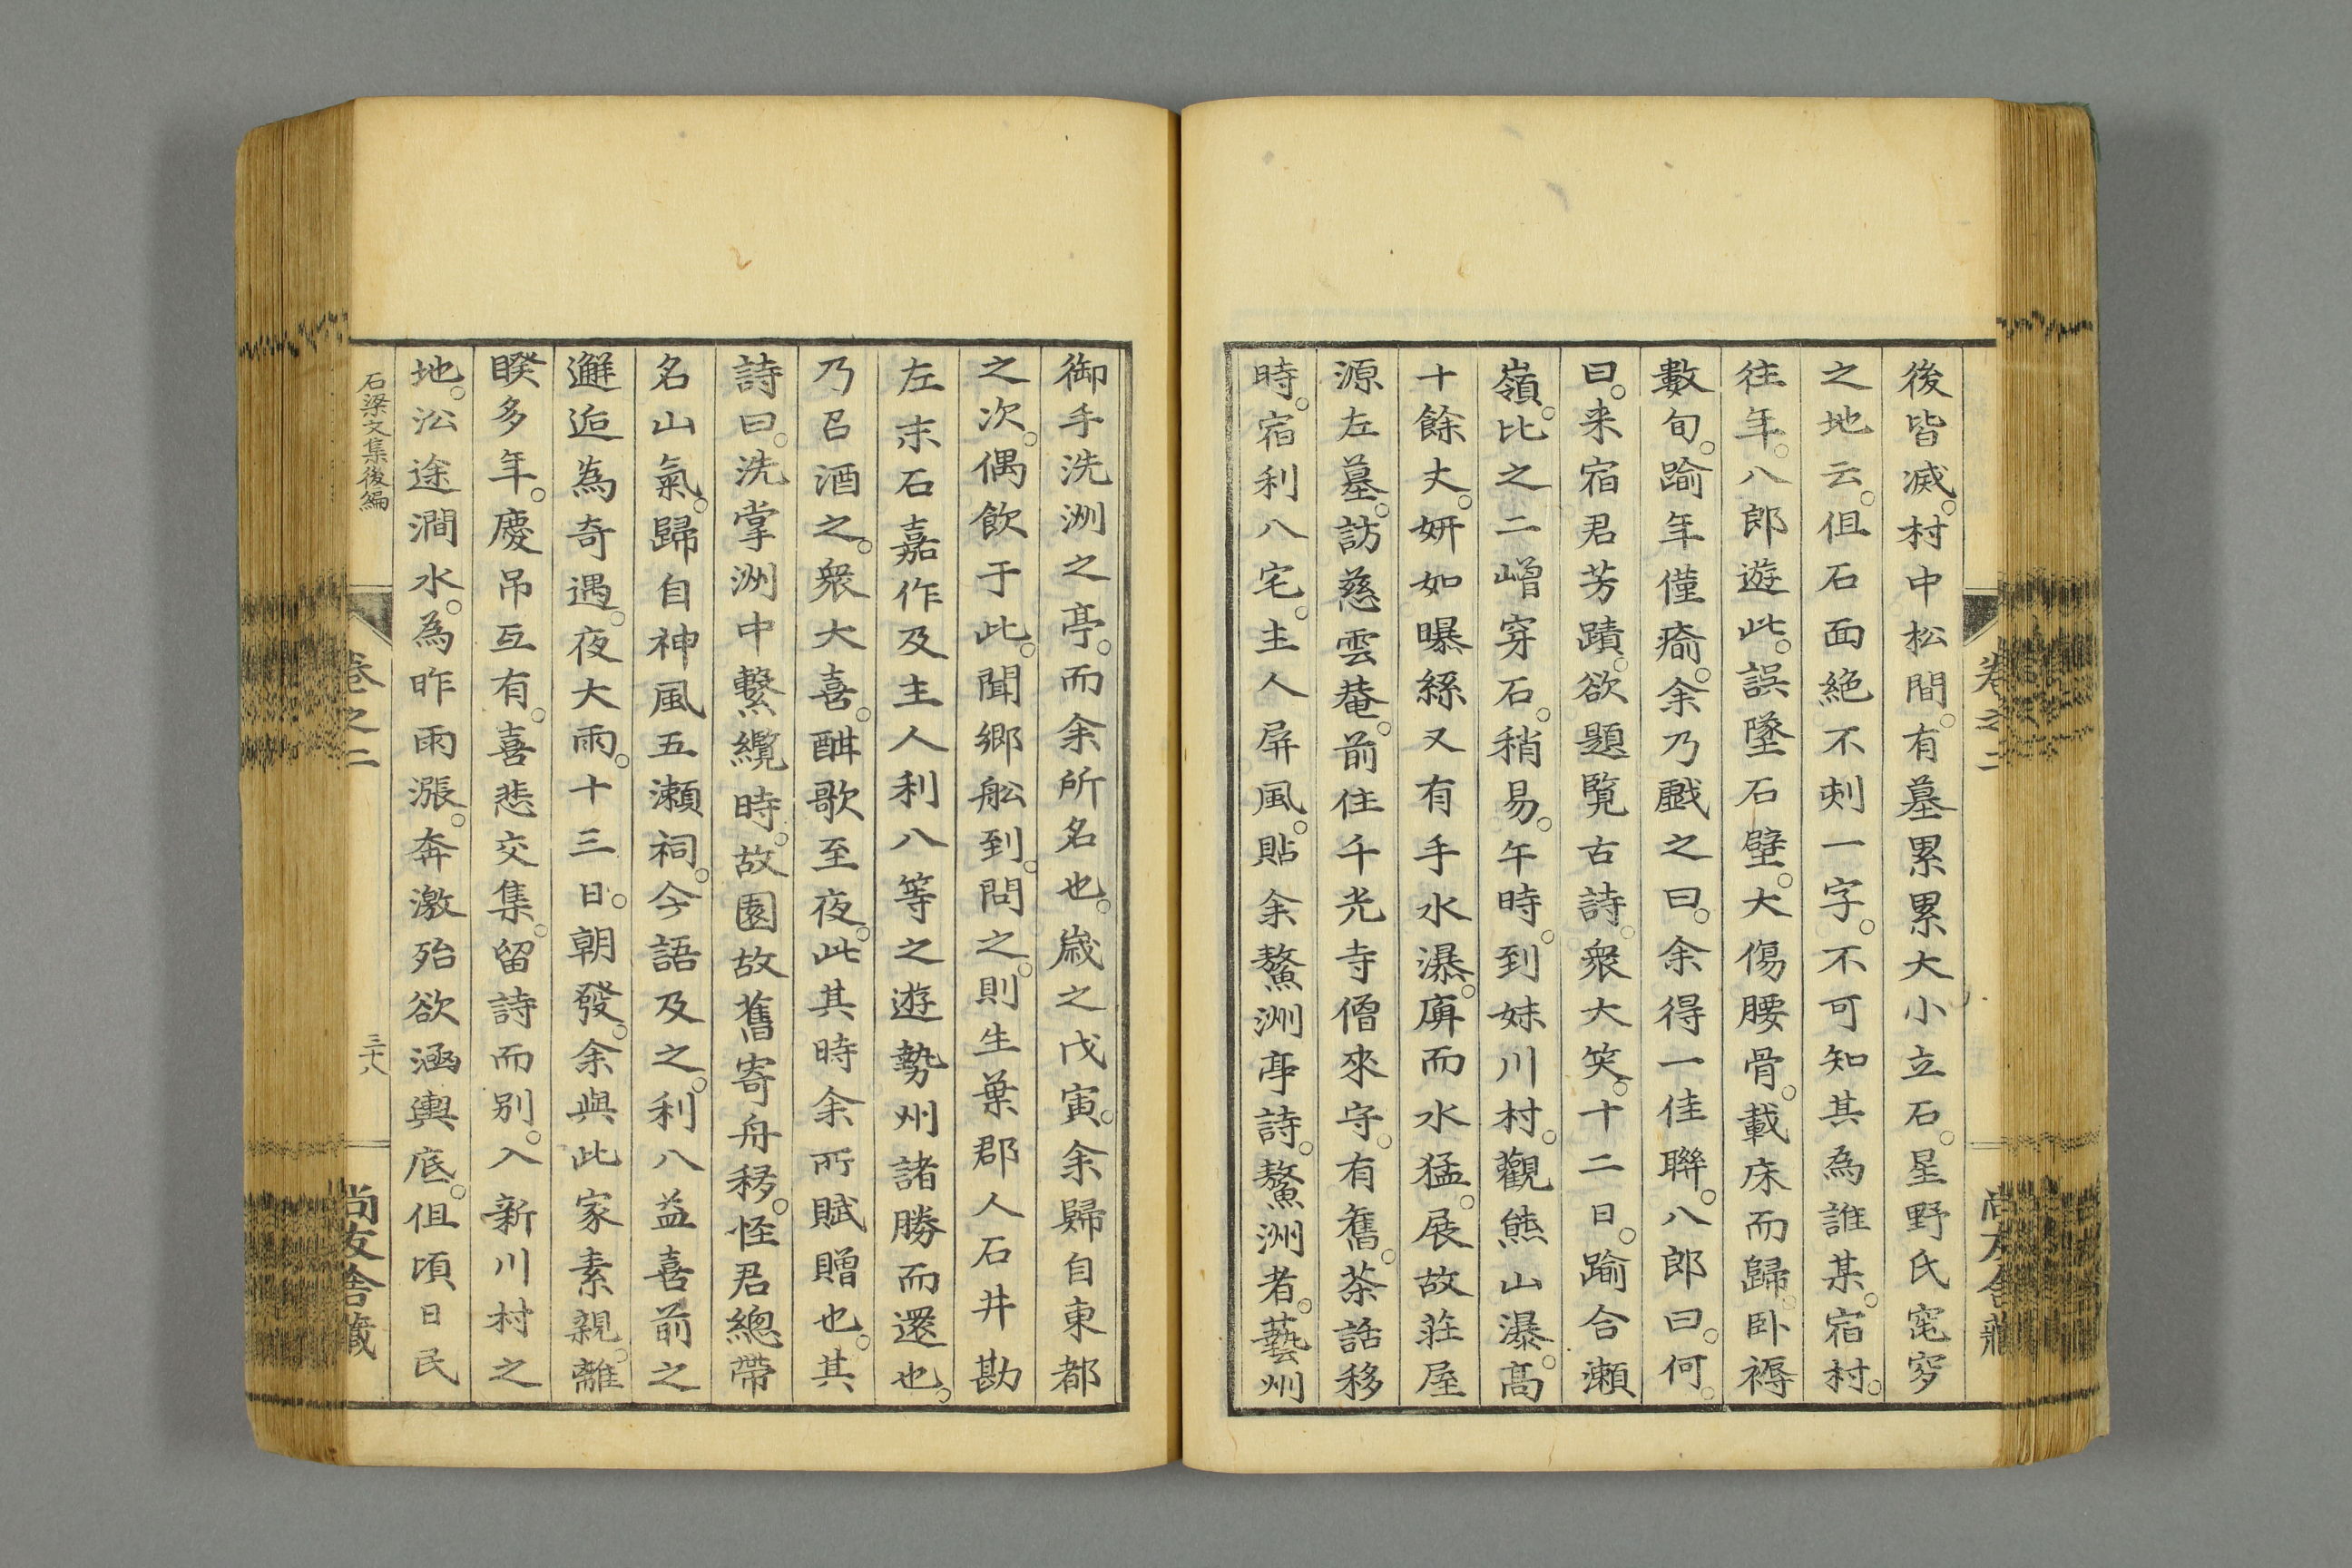 後皆滅。村中松間。有墓累累大小立石。星野氏窀穸
之地云。但石面絶不刺一字。不可知其為誰某。宿村。
往年。八郎遊此。誤墜石壁。大傷腰骨。載床而歸。卧褥
數旬。踰年僅瘉。余乃戲之曰。余得一佳聯。八郎曰。何。
曰。来宿君芳蹟。欲題覧古詩。衆大笑。十二日。踰合瀬
嶺。比之二嶒穿石。稍易。午時。到妹川村。觀熊山瀑。高
十餘丈。妍如曝絲又有手水瀑。庳而水猛。展故荘屋
源左墓。訪慈雲菴。前住千光寺僧來守。有舊。茶話移
時。宿利八宅。主人屏風。貼余鰲洲亭詩。鰲洲者。藝州
卷之二
尚友舎蔵
御手洗洲之亭。而余所名也。歳之戊寅。余歸自東都
之次。偶飲于此。聞郷舩到。問之。則生葉郡人石井勘
左末石嘉作及主人利八等之遊勢州諸勝而還也。
乃召酒之。衆大喜。酣歌至夜。此其時余所賦贈也。其
詩曰。洗掌洲中繋纜時。故園故舊寄舟移。怪君總帶
名山氣。歸自神風五瀬祠。今語及之。利八益喜前之
邂逅為奇遇。夜大雨。十三日。朝發。余與此家素親。離
睽多年。慶吊互有。喜悲交集。留詩而別。入新川村之
地。沿途澗水。為昨雨漲。奔激殆欲涵輿底。但頃日民
石梁文集後編
卷之二
三十八
尚友舎藏